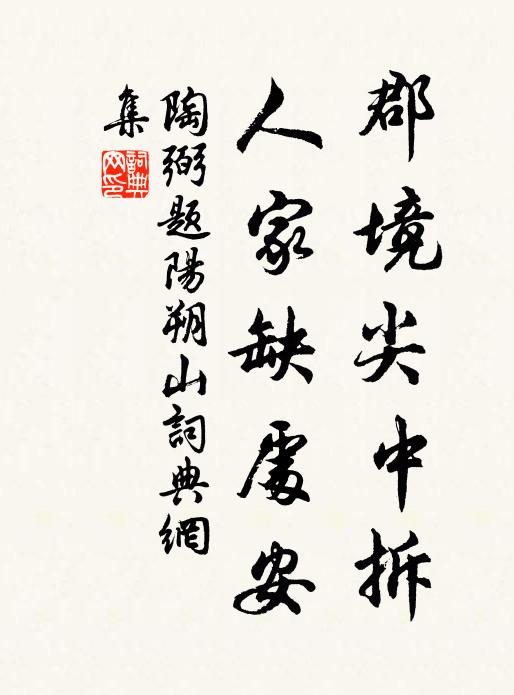 郡境尖中拆
人家缺處安
陶弼題陽朔山詞典網
集
詞典網印